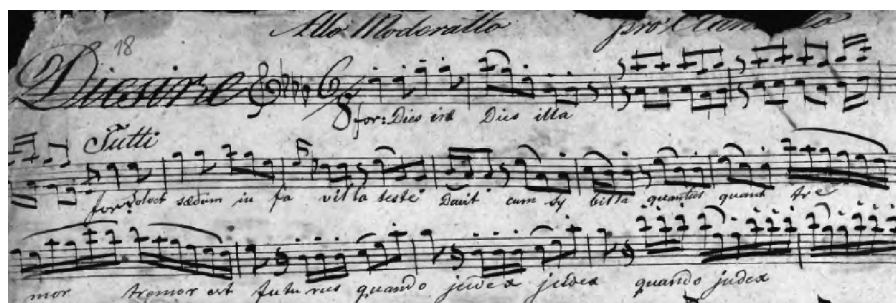 18 Allo Moderatto pro
Dies irae
for: Dies ira Dies illa
Tutti
for: solvet sedum in fa villa teste Davit cum sy billa quantus quant tre
mor tremor est futu rus quando judex judex quando judex